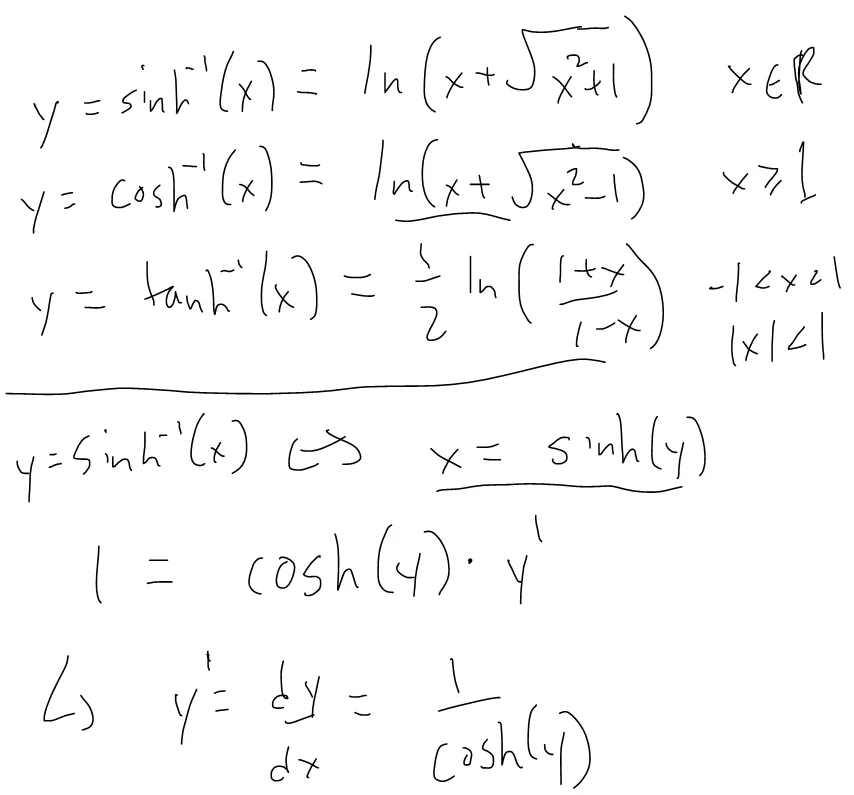 y = sinh⁻¹(x) = ln(x+√(x²+1)) x ∈ ℝ
y = cosh⁻¹(x) = ln(x+√(x²−1)) x ⩾ 1
y = tanh⁻¹(x) = 1/2 ln((1+x)/(1−x)) -1<x<1
|x|<1
y = sinh⁻¹(x) ↔ x = sinh(y)
1 = cosh(y) · y'
↳ y' = dy/dx = 1/cosh(y)